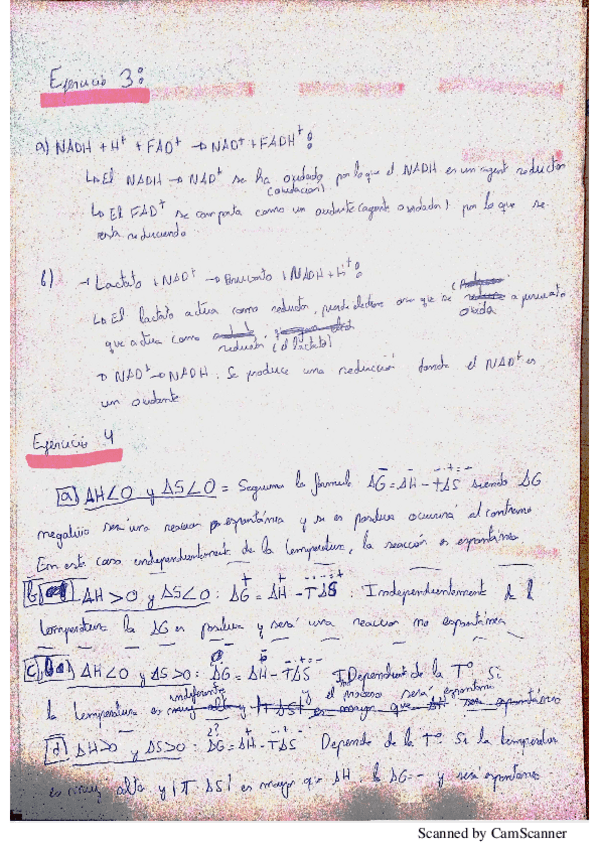 Ejercicio 3:
a) NADH + H+ + FAD+ → NAD+ + FADH+:
↳ El NADH → NAD+ se ha oxidado por lo que el NADH es un agent reductor
(oxidación)
↳ El FAD+ se comporta como un oxidante (agente oxidador) por lo que se
está reduciendo
b) → Lactato + NAD+ → Piruvato + NADH + H+:
↳ El lactato actúa como reductor, pierde electrones que se oxida a piruvato
que actúa como reductor (el lactato)
→ NAD+ → NADH. Se produce una reducción donde el NAD+ es
un oxidante
Ejercicio 4
a) ΔH<0 y ΔS<0 = Seguimos la fórmula ΔG = ΔH - TΔS siendo ΔG
negativo será una reacción espontánea y si es positiva ocurrirá al contrario
En este caso independientemente de la temperatura, la reacción es espontánea
b) ΔH>0 y ΔS<0 : ΔG = ΔH - TΔS : Independientemente d l
temperatura la ΔG es positiva y será una reacción no espontánea
c) ΔH<0 y ΔS>0 : ΔG = ΔH - TΔS Independient de la Tº Si
la temperatura es indiferente y el proceso será espontáneo
d) ΔH>0 y ΔS>0 : ΔG = ΔH - TΔS Depende de la Tº Si la temperatura
es muy alta y |T·ΔS| es mayor que ΔH la ΔG = - y será espontánea
Scanned by CamScanner